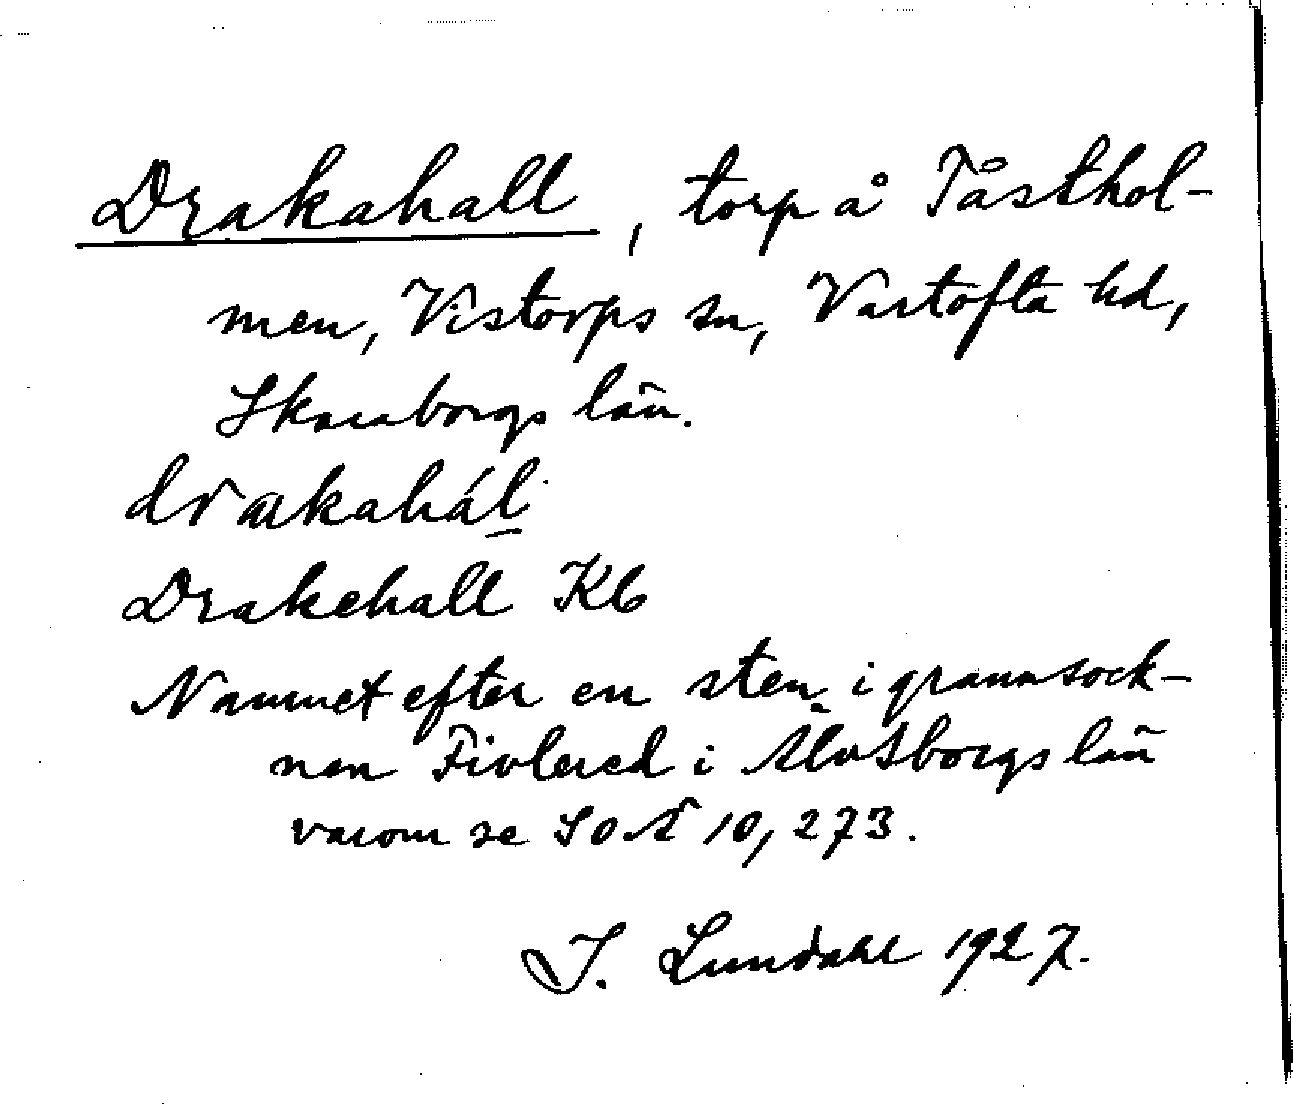 Drakahall, torp å Tåsthol-
men, Vistorps sn, Vartofta hd,
Skaraborgs län.
drakahál
Drakehall Kb
Namnet efter en sten i grannsock-
nen Fivlered i Älvsborgs län
varom se SOÄ 10, 273.
I. Lundahl 1927.